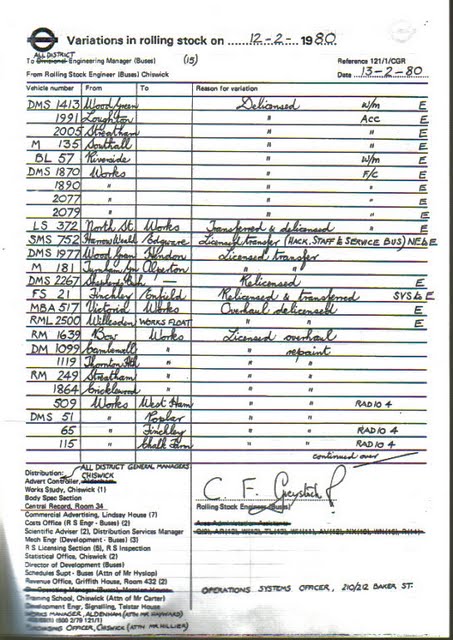 Variations in rolling stock on 12-2- 1980
ALL DISTRICT
To Divisional Engineering Manager (Buses) (15) Reference 121/1/CGR
From Rolling Stock Engineer (Buses) Chiswick Date 13-2-80
Vehicle number From To Reason for variation
DMS 1413 Wood Green Delicensed w/m E
1991 Loughton " Acc E
2005 Streatham " " E
M 135 Southall " " E
BL 57 Riverside " w/m E
DMS 1870 Works " F/c E
1890 " " " E
2077 " " " E
2079 " " " E
LS 372 North St. Works Transferred & delicensed " E
SMS 752 Harrow Weald Edgware Licensed transfer (HACK. STAFF & SERVICE BUS) NE & E
DMS 1977 Wood Green Hendon Licensed transfer
M 181 Turnham Gn Alperton " "
DMS 2267 Shepherds Bush — Relicensed E
FS 21 Finchley Enfield Relicensed & transferred SYS & E
MBA 517 Victoria Works Overhaul delicensed E
RML 2500 Willesden WORKS FLOAT " " E
RM 1639 Bow Works Licensed overhaul
DM 1099 Camberwell " " repaint
1119 Thornton Hth " " "
RM 249 Streatham " " "
1864 Cricklewood " " "
509 Works West Ham " " RADIO 4
DMS 51 " Poplar " "
65 " Finchley " " RADIO 4
115 " Chalk Farm " " RADIO 4
continued over
ALL DISTRICT GENERAL MANAGERS
Distribution: CHISWICK
Advert Controller, Aldenham
Works Study, Chiswick (1)
Body Spec Section
Central Record, Room 34
C. F. Greystock
Rolling Stock Engineer (Buses)
Commercial Advertising, Lindsay House (7)
Costs Office (R S Engr - Buses) (2)
Area Administration Assistants
Scientific Adviser (2), Distribution Services Manager
Mech Engr (Development - Buses) (3)
R S Licensing Section (5), R S Inspection
Statistical Office, Chiswick (2)
Director of Development (Buses)
Schedules Supt - Buses (Attn of Mr Hyslop)
Revenue Office, Griffith House, Room 432 (2)
OPERATIONS SYSTEMS OFFICER, 210/212 BAKER ST.
Training School, Chiswick (Attn of Mr Carter)
Development Engr, Signalling, Telstar House
WORKS MANAGER, ALDENHAM
(500 2/79 121/1)
OFFICER, CHISWICK (ATTN MR HILLIER)